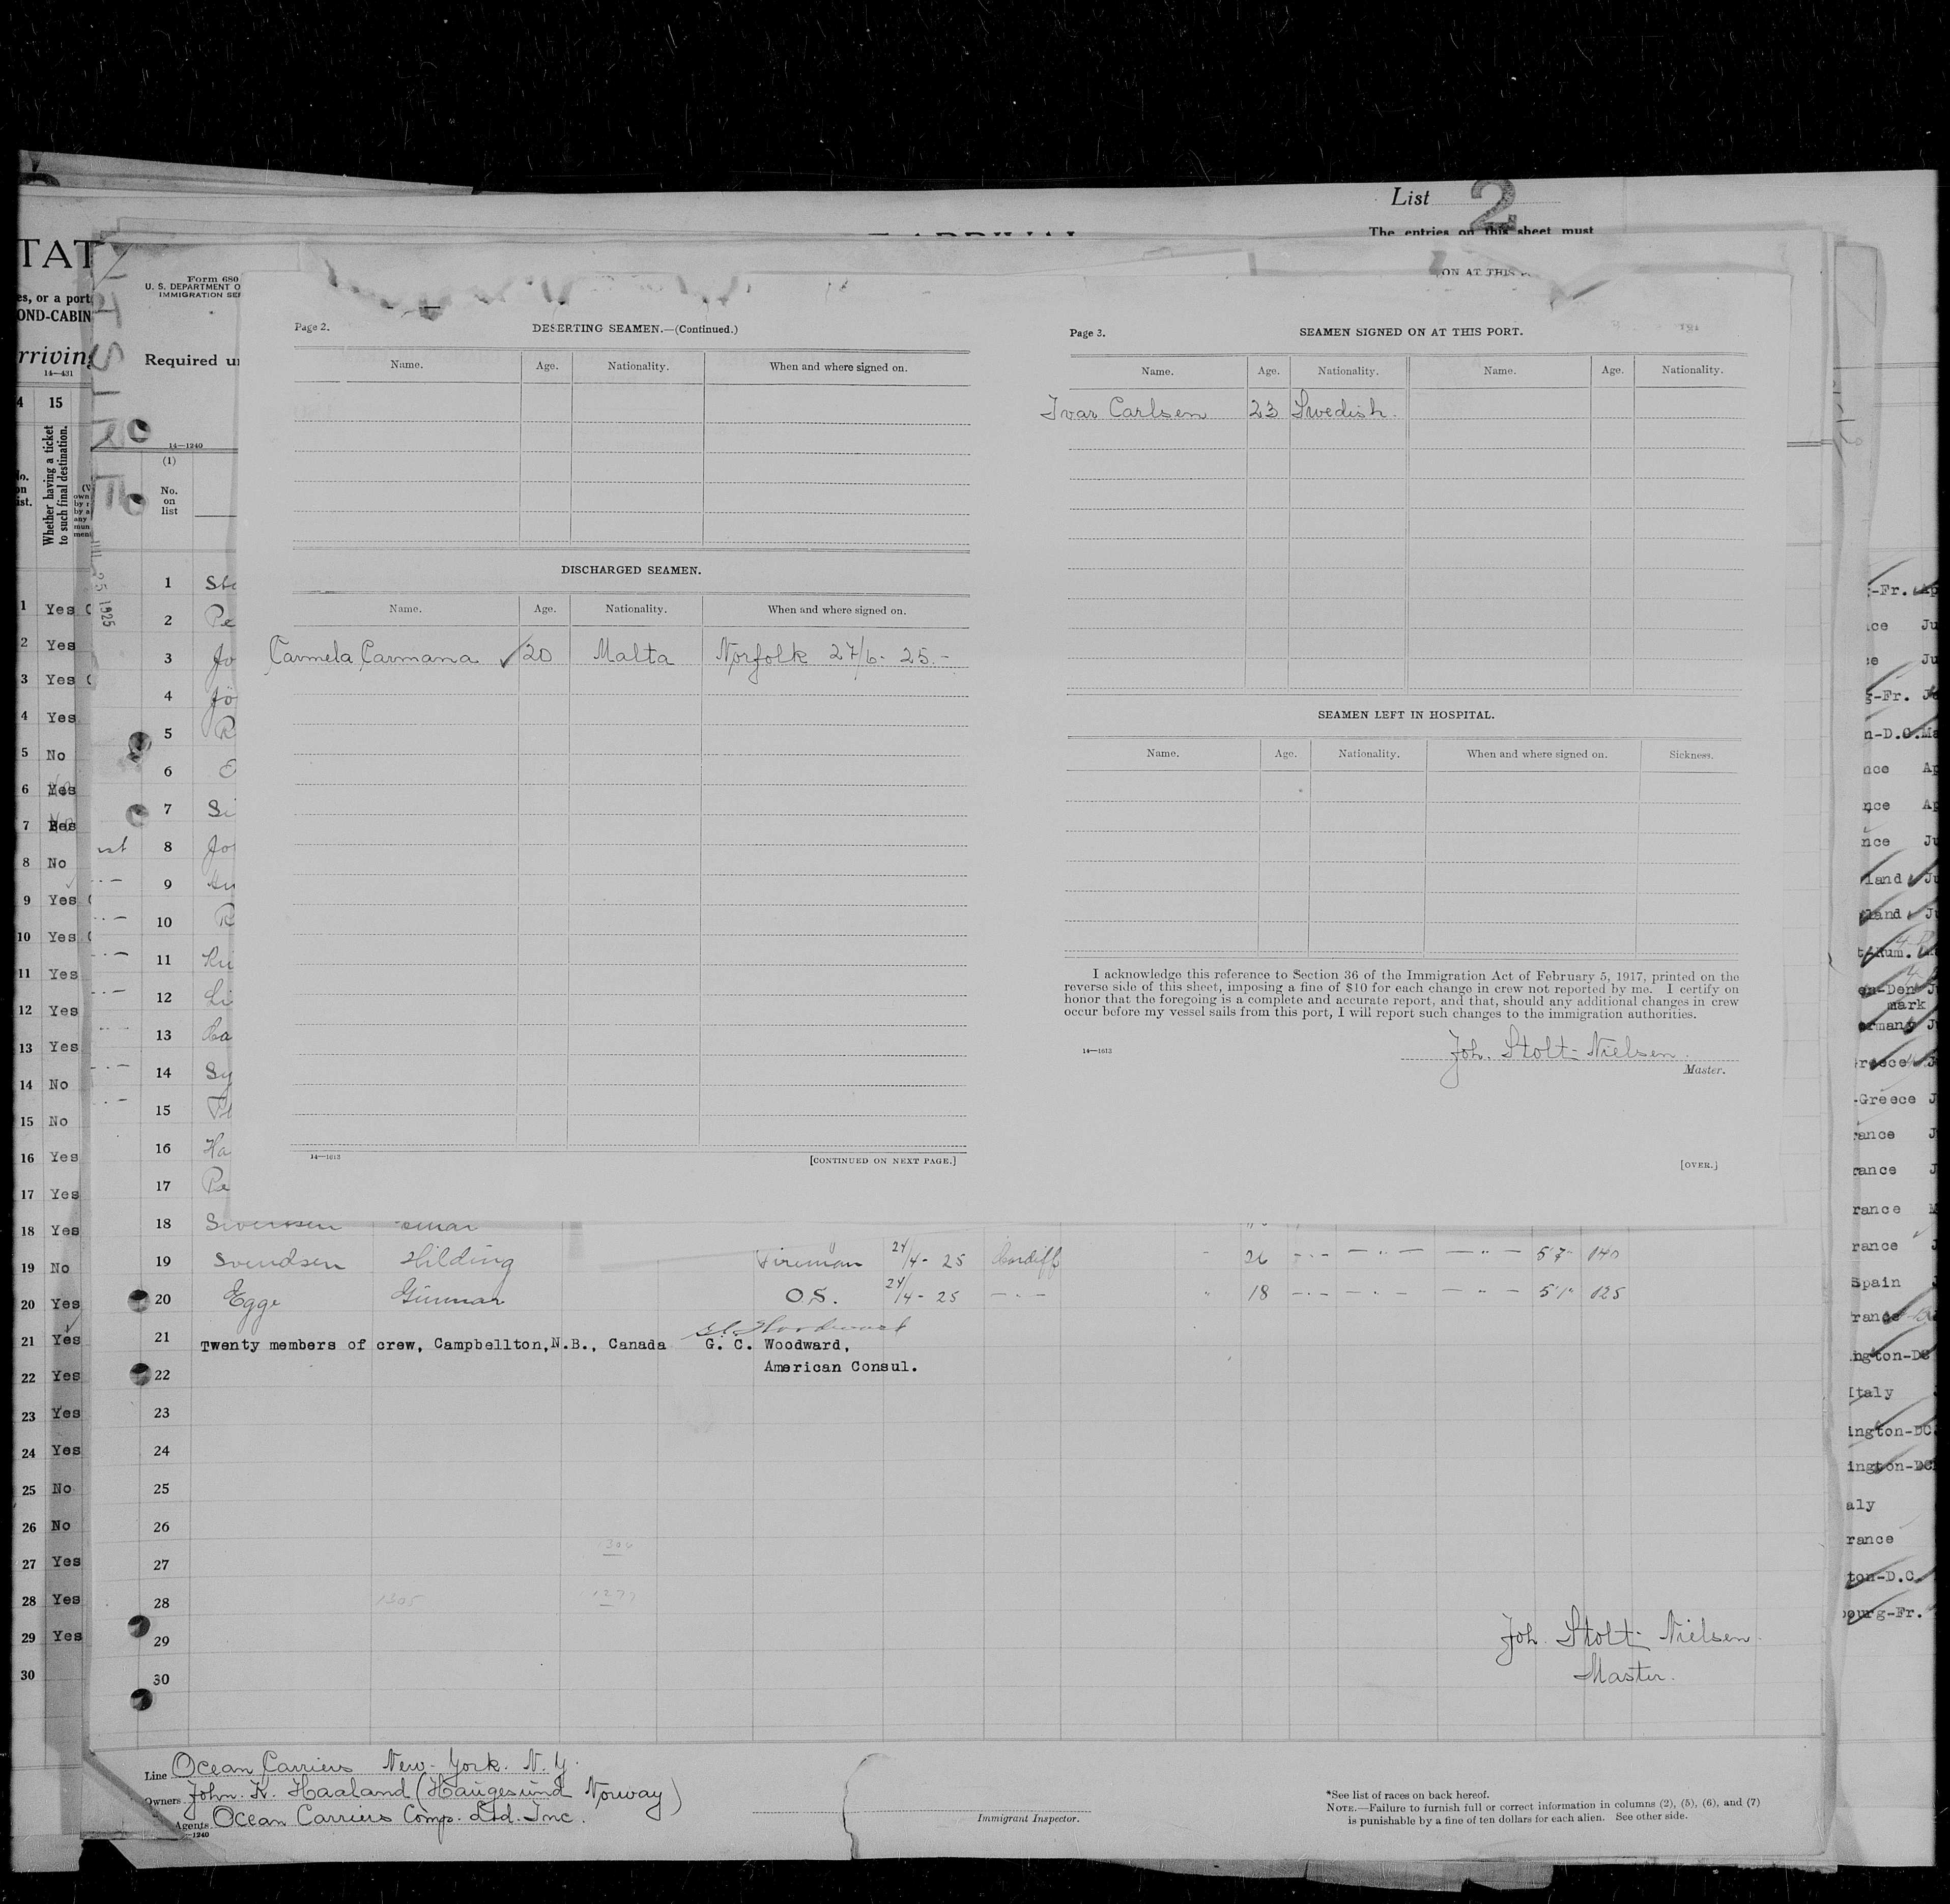 List 2
The entries on this sheet must
TAT
Form 680
U. S. DEPARTMENT O
IMMIGRATION SE
es, or a port
OND-CABIN
rriving
14—431
Required u
ON AT THIS
Page 2.
DESERTING SEAMEN.—(Continued.)
Name. Age. Nationality. When and where signed on.
DISCHARGED SEAMEN.
Name. Age. Nationality. When and where signed on.
Carmela Carmana 20 Malta Norfolk 27/6- 25.-
14—1613
[CONTINUED ON NEXT PAGE.]
Page 3.
SEAMEN SIGNED ON AT THIS PORT.
Name. Age. Nationality. Name. Age. Nationality.
Ivar Carlsen 23 Swedish.
SEAMEN LEFT IN HOSPITAL.
Name. Age. Nationality. When and where signed on. Sickness.
I acknowledge this reference to Section 36 of the Immigration Act of February 5, 1917, printed on the
reverse side of this sheet, imposing a fine of $10 for each change in crew not reported by me. I certify on
honor that the foregoing is a complete and accurate report, and that, should any additional changes in crew
occur before my vessel sails from this port, I will report such changes to the immigration authorities.
14—1613
Joh. Stolt-Nielsen.
Master.
[OVER.]
4 15
Whether having a ticket
to such final destination.
1 Yes
2 Yes
3 Yes
4 Yes
5 No
6
7
8 No
9 Yes
10 Yes
11 Yes
12 Yes
13 Yes
14 No
15 No
16 Yes
17 Yes
18 Yes
19 No
20 Yes
21 Yes
22 Yes
23 Yes
24 Yes
25 No
26 No
27 Yes
28 Yes
29 Yes
30
14—1240
(1)
No.
on
list
1
2 Pe
3 Jo
4 Jö
5 R
6
7 Si
8 Jo
9
10 R
11
12 Li
13
14 Sy
15
16 Ha
17 Pe
18
19 Svendsen Hilding Fireman 24/4- 25 Cardiff 26 5'7" 140
20 Egge Gunnar O.S. 24/4- 25 18 5'1" 125
21 Twenty members of crew, Campbellton,N.B., Canada G. C. Woodward,
22 American Consul.
23
24
25
26
27
28 1305
29
30
Joh. Stolt-Nielsen.
Master.
Line Ocean Carriers New-York. N.Y.
Owners John. K. Haaland (Haugesund Norway)
Agents Ocean Carriers Comp. Ltd. Inc.
—1240
Immigrant Inspector.
*See list of races on back hereof.
NOTE.—Failure to furnish full or correct information in columns (2), (5), (6), and (7)
is punishable by a fine of ten dollars for each alien. See other side.
-Fr.
g-Fr.
n-D.C.
nce
nce
nce
land
land
mark
-Greece
rance
rance
rance
rance
Spain
Italy
ington-DC
ington-DC
aly
rance
ton-D.C.
bourg-Fr.